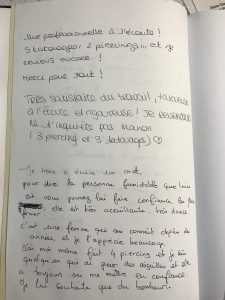 Une professionnelle à l'écoute !
5 tatouages 2 piercings, et
encore !
Merci pour tout !
Très satisfaite du travail, tatoueuse
à l'écoute et rigoureuse ! Je
Ne t'inquiète pas Manon
(3 piercing et 3 tatouages) ♡
- Je tiens à écrire un mot,
pour dire la personne formidable que
est vous pouvez lui faire confiance les
, elle est très accueillante, très douce
c'est une femme qui on connaît depuis
années, et je l'apprécie beaucoup,
J'ai moi même fait 4 piercings et je suis
quelqu'un qui a peur des aiguilles et elle
a toujours su me mettre en confiance.
Je lui souhaite que du bonheur.